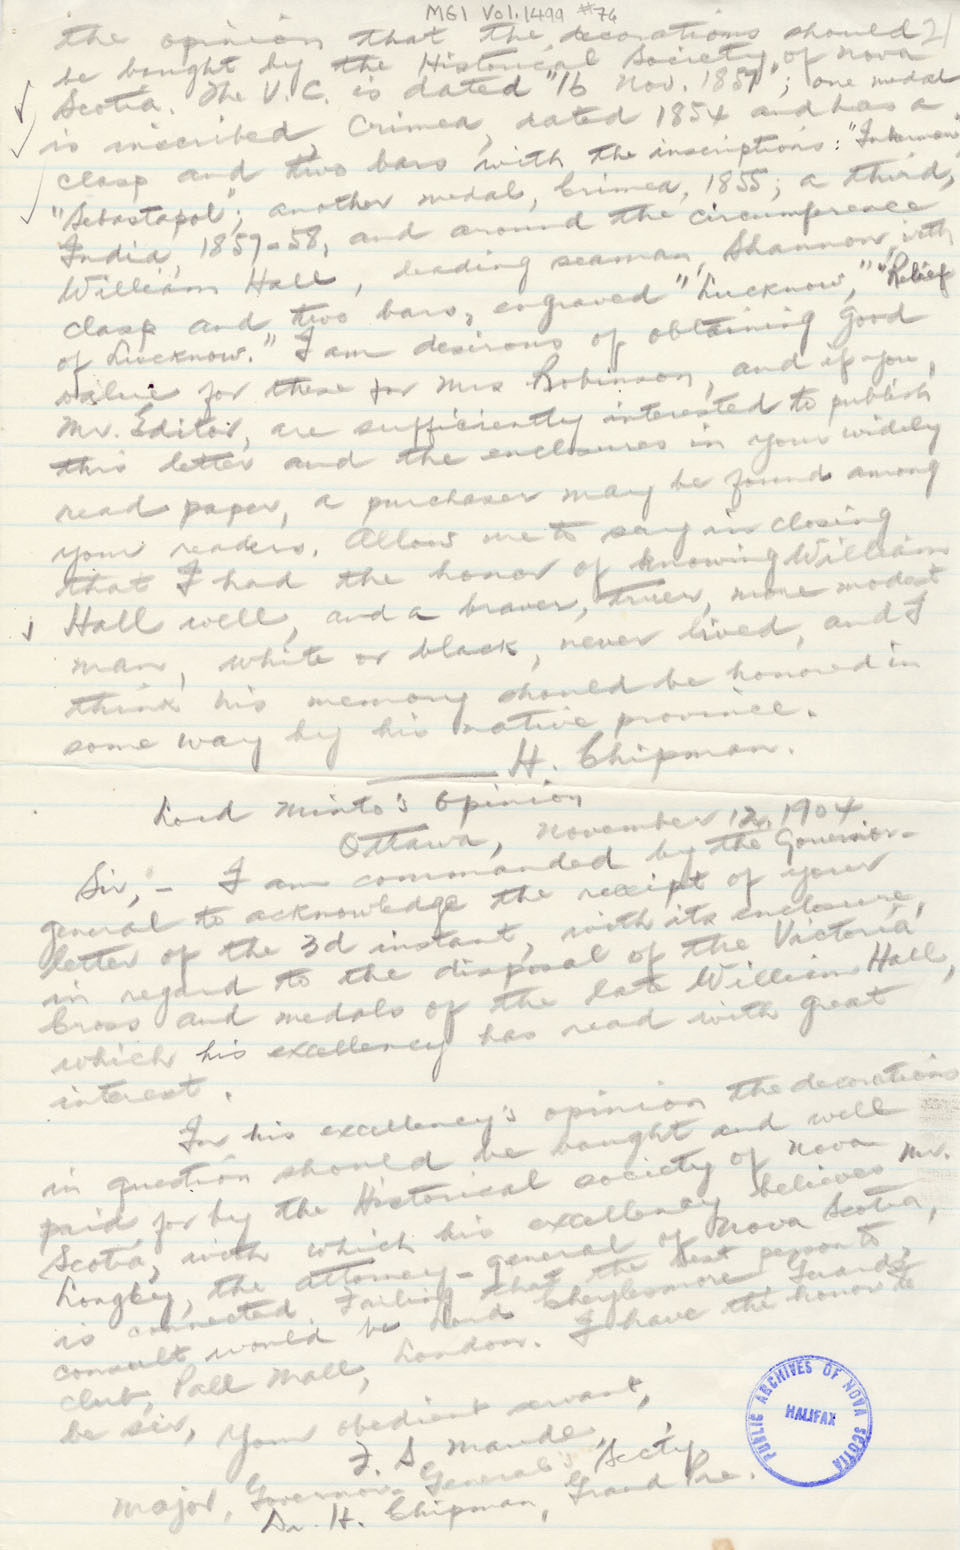 MG1 Vol. 1499 #76
2/
the opinion that the decorations should
be bought by the Historical Society of Nova
Scotia. The V.C. is dated "16 Nov. 1857"; one medal
is inscribed, Crimea, dated 1854 and has a
clasp and two bars with the inscriptions: "Inkerman"
"Sebastapol"; another medal, Crimea, 1855; a third,
India, 1857-58, and around the circumference
William Hall, leading seaman, Shannon, with
clasp and two bars, engraved "Lucknow," "Relief
of Lucknow." I am desirous of obtaining good
value for these for Mrs Robinson, and if you,
Mr. Editor, are sufficiently interested to publish
this letter and the enclosures in your widely
read paper, a purchaser may be found among
your readers. Allow me to say in closing
that I had the honor of knowing William
Hall well, and a braver, truer, more modest
man, white or black, never lived, and I
think his memory should be honored in
some way by his native province.
H. Chipman.
Lord Minto's Opinion
Ottawa, November 12, 1904
Sir, - I am commanded by the Governor-
general to acknowledge the receipt of your
letter of the 3d instant, with its enclosure,
in regard to the disposal of the Victoria
Cross and medals of the late William Hall,
which his excellency has read with great
interest.
In his excellency's opinion the decorations
in question should be bought and well
paid for by the Historical society of Nova
Scotia, with which his excellency believes Mr.
Longley, the attorney-general of Nova Scotia,
is connected. Failing that, the best person to
consult would be Lord Cheylesmore, Guards
club, Pall Mall, London. I have the honor to
be sir, your obedient servant,
F. S Maude
Major, Governor-General's Sec'ty.
Dr. H. Chipman, Grand Pre.
PUBLIC ARCHIVES OF NOVA SCOTIA
HALIFAX